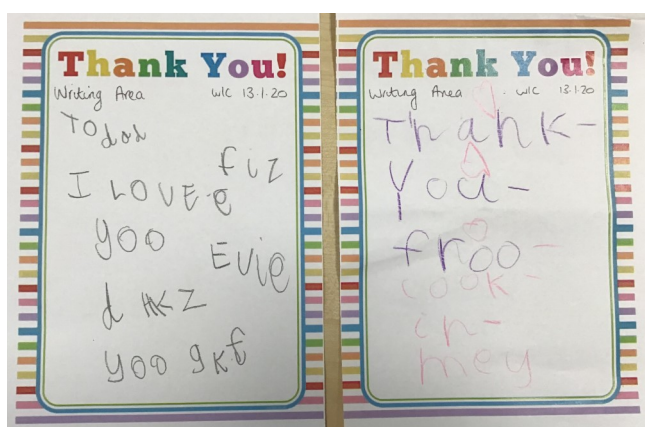 Thank You!
Writing Area w/c 13.1.20
To dad
I LOVE
fiz
yoo
Evie
d KKZ
yoo gkf
Thank You!
Writing Area w/c 13.1.20
Thank-
You-
froo-
cook-
in-
mey